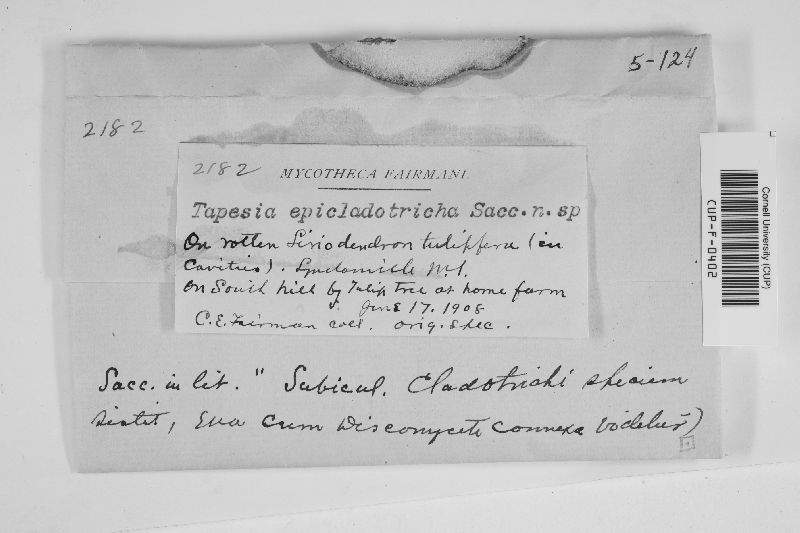 5-124
2182
2182 MYCOTHECA FAIRMANI.
Tapesia epicladotricha Sacc. n. sp
On rotten Liriodendron tulipifera (in
Cavities). Lyndonville N.Y.
On South hill by Tulip Tree at home farm
June 17. 1908
C. E. Fairman coll. orig. spec.
Sacc. in lit. " Subicul. Cladotrichi speciem
sistit, cum Discomycete connexa videtur)
Cornell University (CUP)
CUP-F-0402